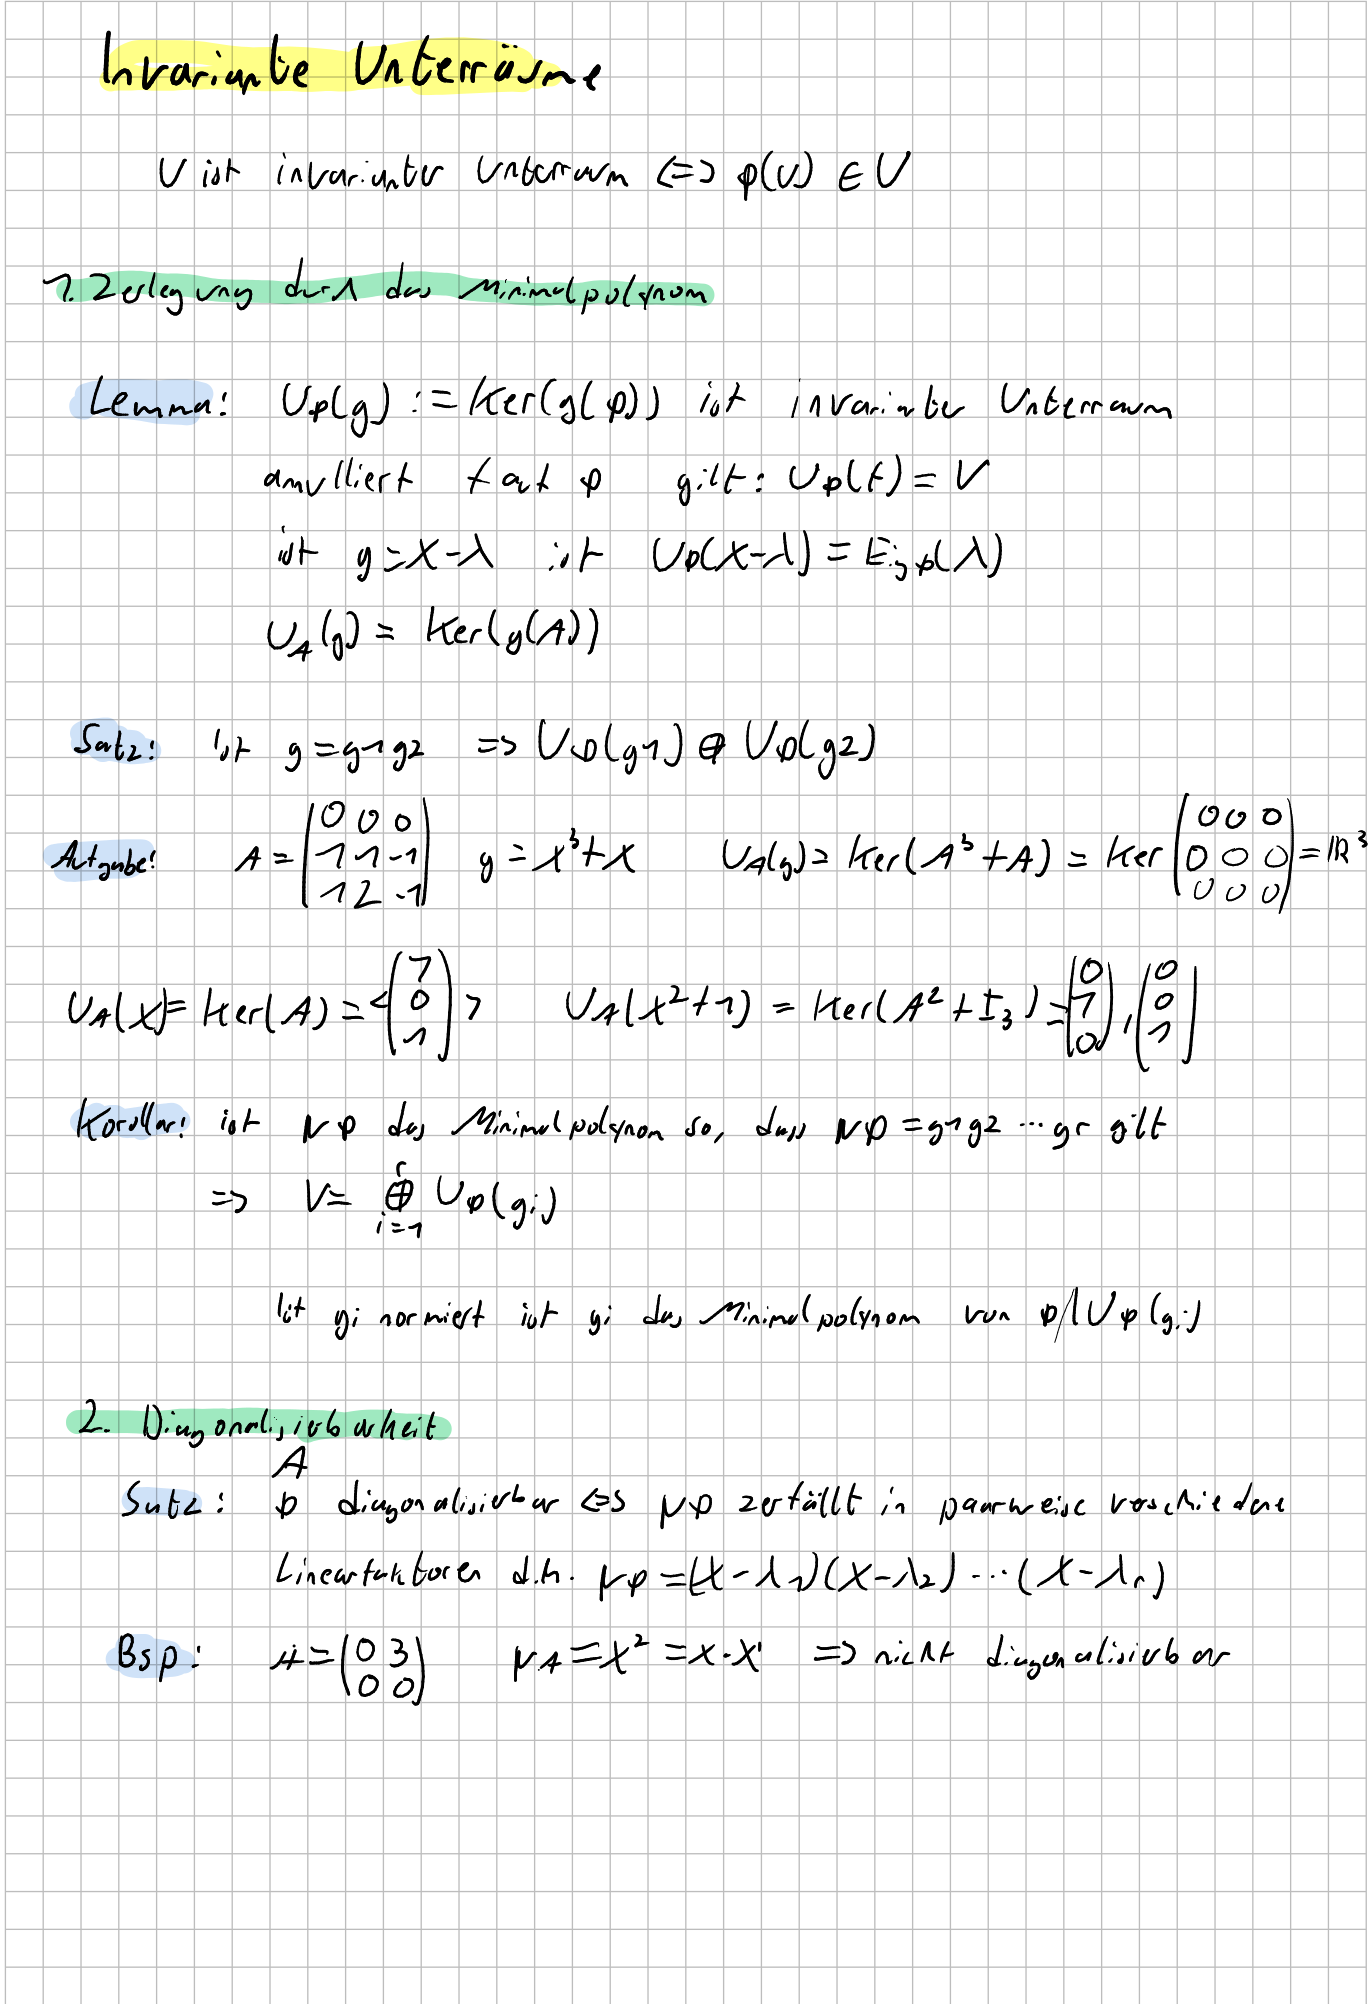 Invariante Unterräume
U ist invarianter Unterraum <=> φ(U) ∈ U
1. Zerlegung durch das Minimalpolynom
Lemma: Uφ(g) := Ker(g(φ)) ist invarianter Unterraum
annulliert f auf φ gilt: Uφ(f) = V
ist g = X-λ ist Uφ(X-λ) = Eigφ(λ)
U_A(g) = Ker(g(A))
Satz: ist g = g1 g2 => Uφ(g1) ⊕ Uφ(g2)
Aufgabe: A = (0 0 0; 1 1 -1; 1 2 -1) g = X³+X U_A(g) = Ker(A³+A) = Ker (0 0 0; 0 0 0; 0 0 0) = ℝ³
U_A(X) = Ker(A) = <(1 0 1)> U_A(X²+1) = Ker(A²+I₃) = (0 1 0), (0 0 1)
Korollar: ist μφ das Minimalpolynom so, dass μφ = g1 g2 ... gr gilt
=> V = ⊕ᵣ i=1 Uφ(gi)
Ist gi normiert ist gi das Minimalpolynom von φ|Uφ(gi)
2. Diagonalisierbarkeit
A
Satz: φ diagonalisierbar <=> μφ zerfällt in paarweise verschiedene
Linearfaktoren d.h. μφ = (X-λ₁)(X-λ₂) ... (X-λr)
Bsp: A = (0 3; 0 0) μA = X² = X·X => nicht diagonalisierbar